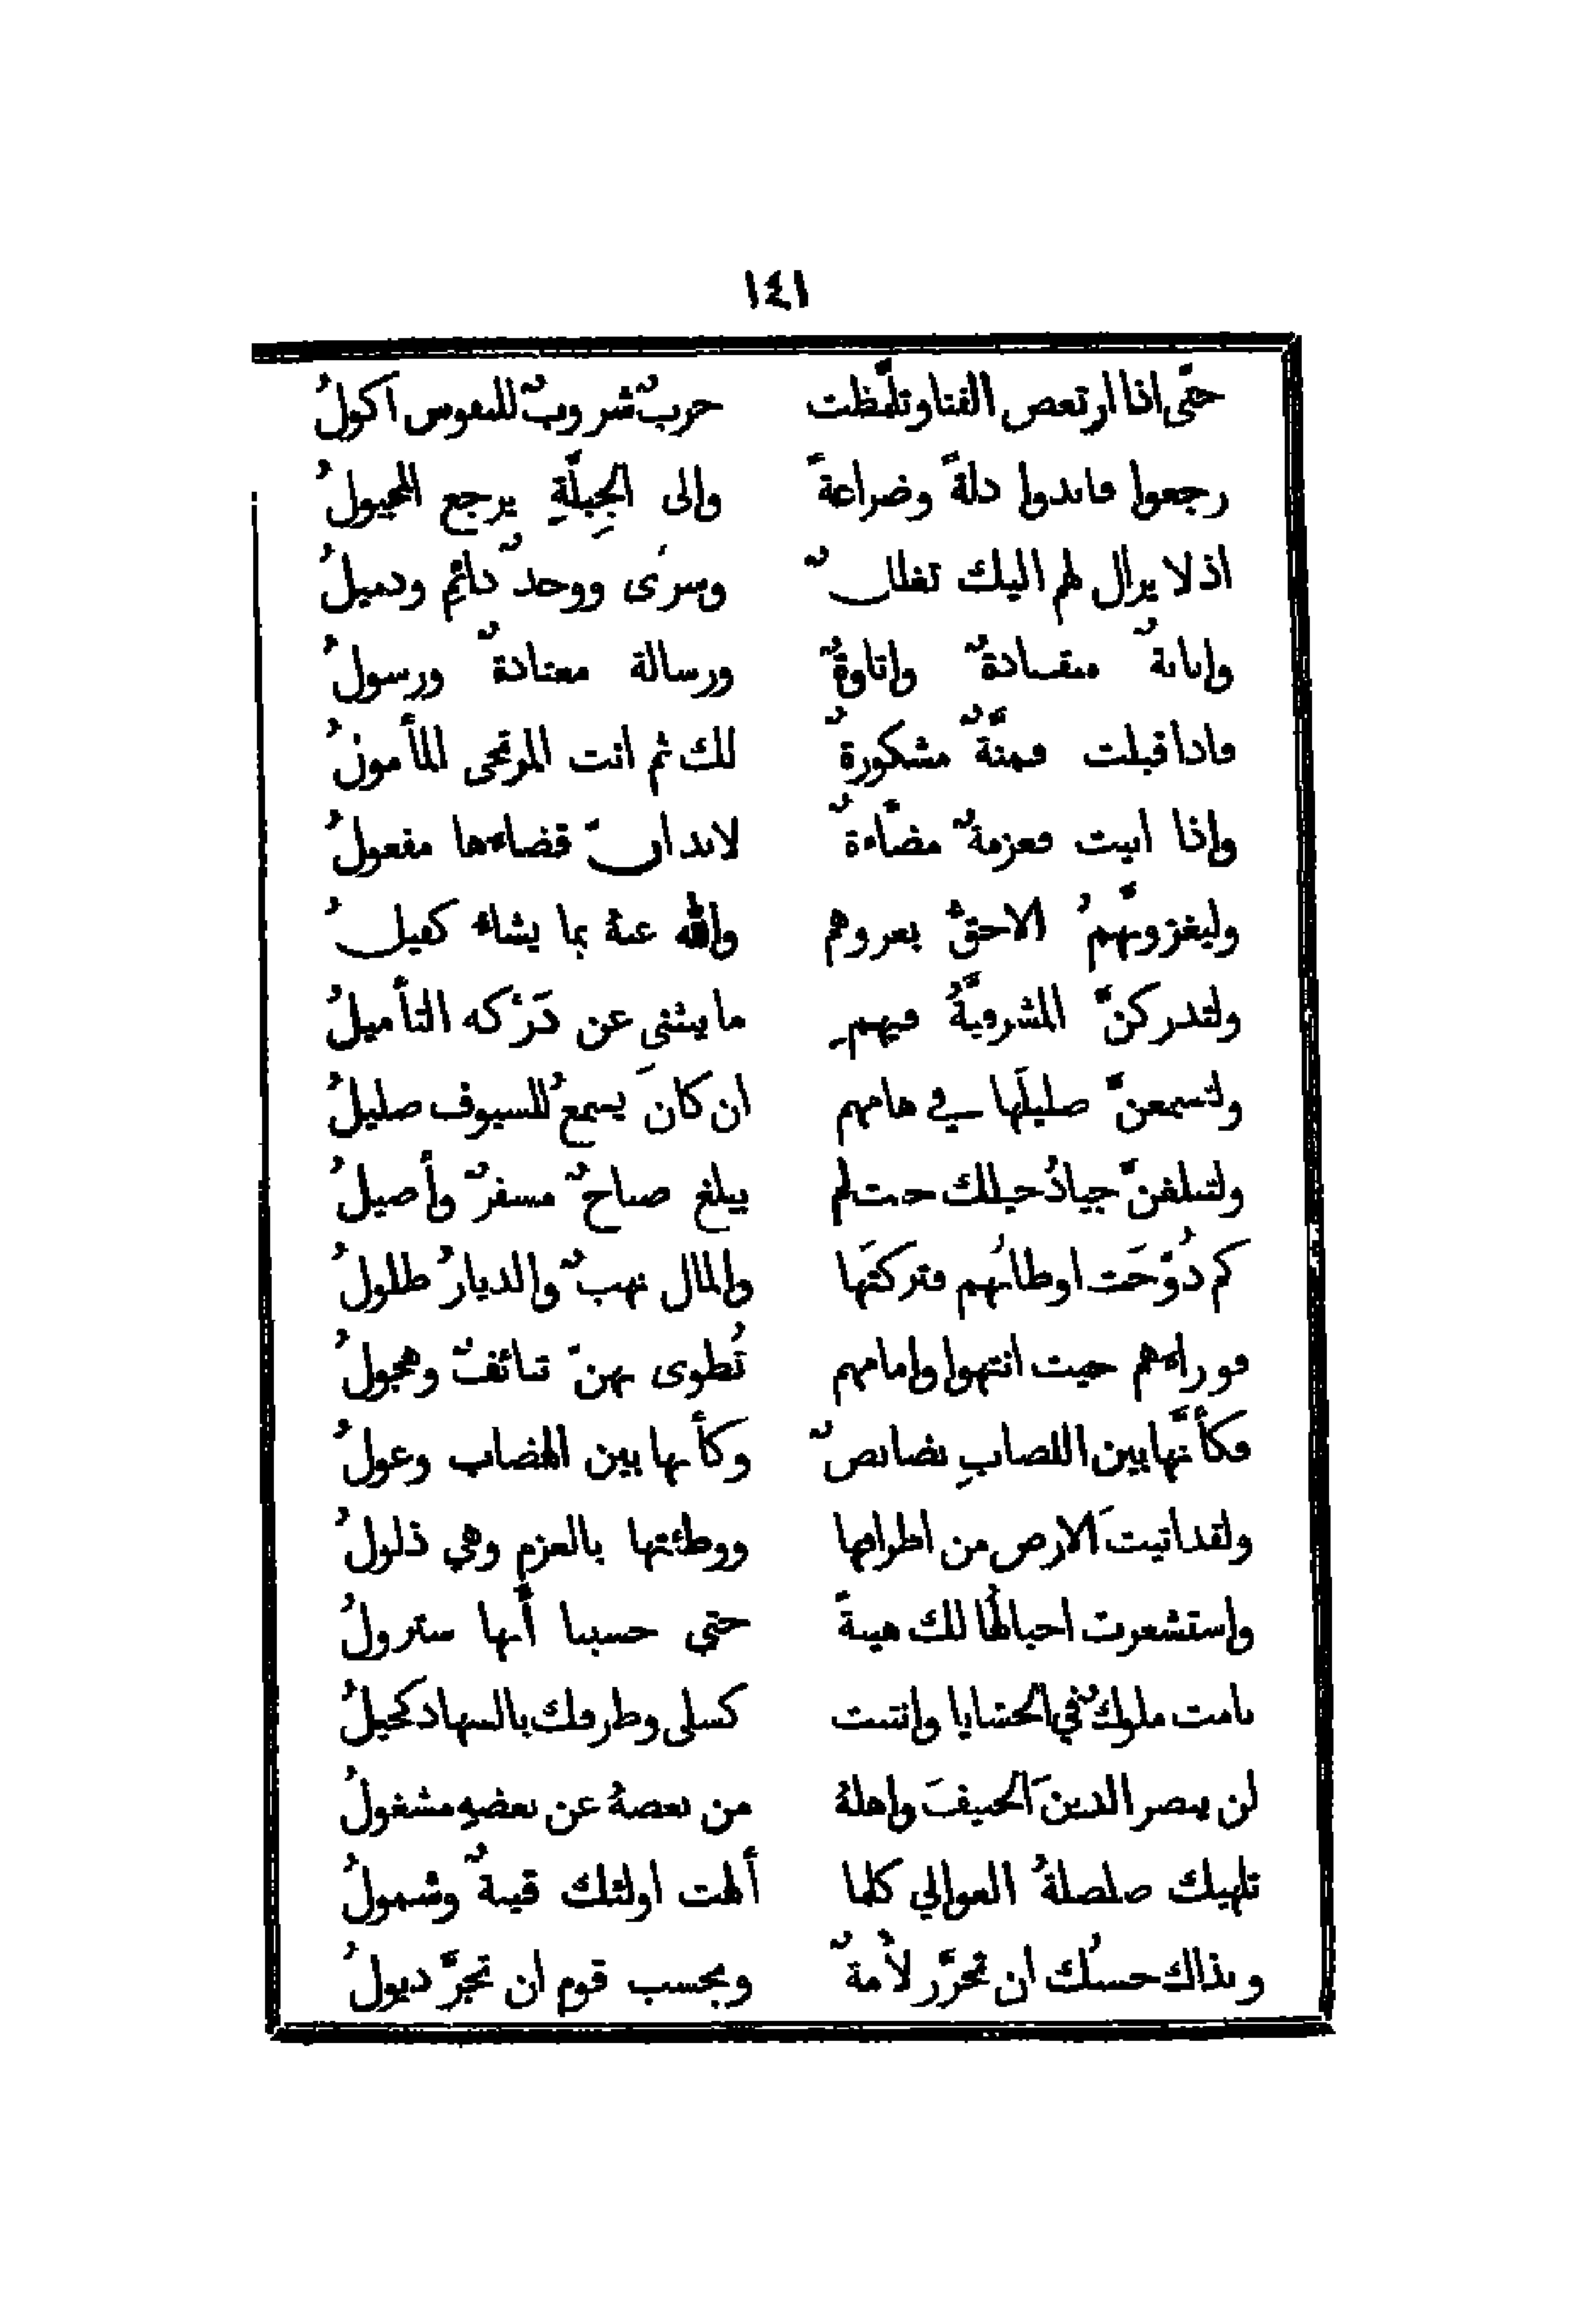 ١٤١
حتَّى اذا ارتعص القنا وتلمَّظت حربٌ شروبٌ للنفوس اكولُ
رجعوا فابدوا ذلةً وضراعةً والى الجِبِلَّةِ يرجع المجبولُ
اذ لا يزال لهم اليك تغلغلٌ وسرًى ووخدٌ دائمٌ وذميلُ
وانابةٌ منقادةٌ واتاوةٌ ورسالة معتادةٌ ورسولُ
فاذا قبلت فمنَّةٌ مشكورةٌ لك ثم انت المرتجى المأمولُ
واذا ابيت فعزمةٌ مضَّاءةٌ لا بد انَّ قضاءها مفعولُ
وليغزونَّهمُ الاحقُّ بغزوهم والله عنهُ بما يشاء كفيلُ
ولتدركنَّ المشرفيَّةُ فيهمِ ما ينثني عن دَرْكه التأميلُ
ولتسمعنَّ صليلَها في هامهم ان كان يَسمعُ للسيوف صليلُ
ولتبلغنَّ جيادُ خيلك حيث لم يبلغ صباحٌ مسفرٌ وأصيلُ
كم دُوِّخَت اوطانُهم فتركتَها والمال نهبٌ والديارُ طلولُ
فوراءهم حيث انتهوا وامامهم تُطوى بهنَّ تنائفٌ وهجولُ
فكأنَّها بين اللصابِ نضانضٌ وكأنها بين الهضاب وعولُ
ولقد اتيتَ الارض من اطرافها ووطئتها بالعزم وهي ذلولُ
واستشعرت اجبالُها لك هيبةً حتى حسبنا أنَّها ستزولُ
نامت ملوكٌ في الحشايا وانثنت كسلى وطرفك بالسهاد كحيلُ
لن ينصر الدينَ الحنيفَ واهلهُ من بعضهُ عن بعضهِ مشغولُ
تلهيك صلصلةُ العوالي كلما ألهت اولئك قينةٌ وشمولُ
وبذاك حسبُك ان تجرَّر لأمةٌ وبحسب قوم ان تجرَّ ذيولُ